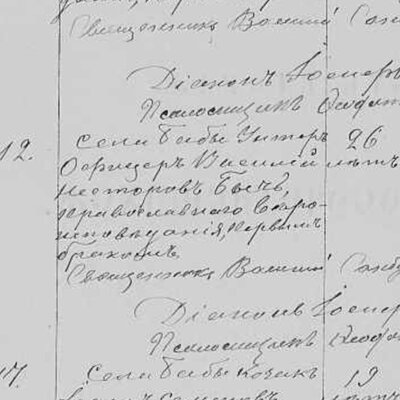 Священникъ Василій
Діаконъ Іосифъ
Псаломщикъ Ѳеофа
12. села Бабы Унтеръ 26
Офицеръ Василій лѣтъ
Несторовъ Бычъ,
православнаго вѣро-
исповѣданія, первымъ
бракомъ.
Священникъ Василій Самб
Діаконъ Іосиф
Псаломщикъ Ѳеофа
17. села Бабы козакъ 19